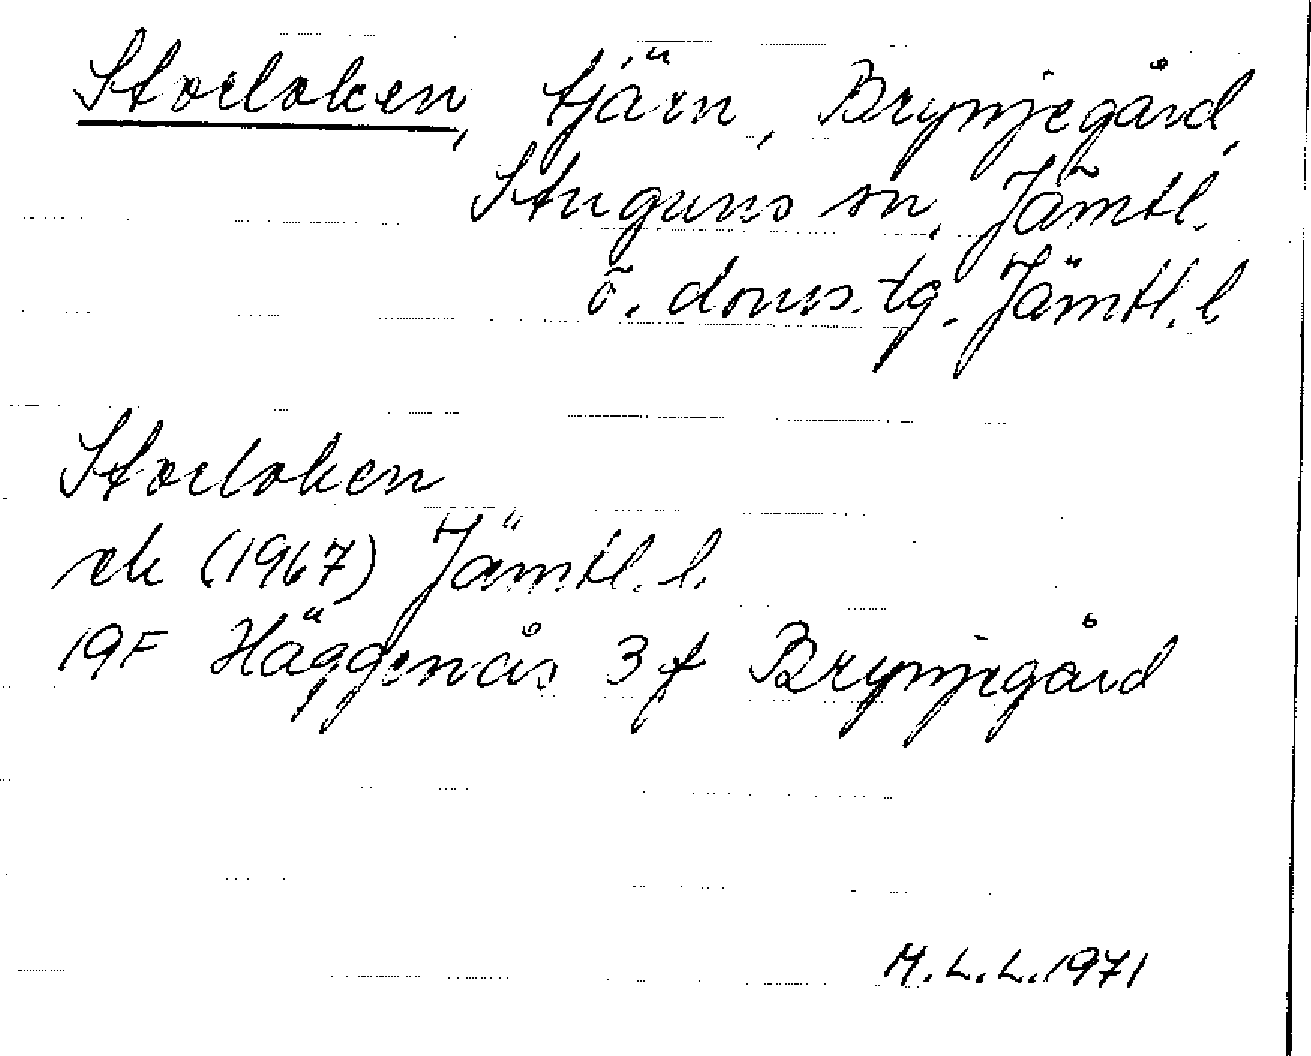 Storloken, tjärn, Brynjegård,
Stuguns sn, Jämtl.
ö. doms.tg. Jämtl. l
Storloken
ek (1967) Jämtl. l.
19F Häggenås 3f Brynjegård
M.L.L.1971